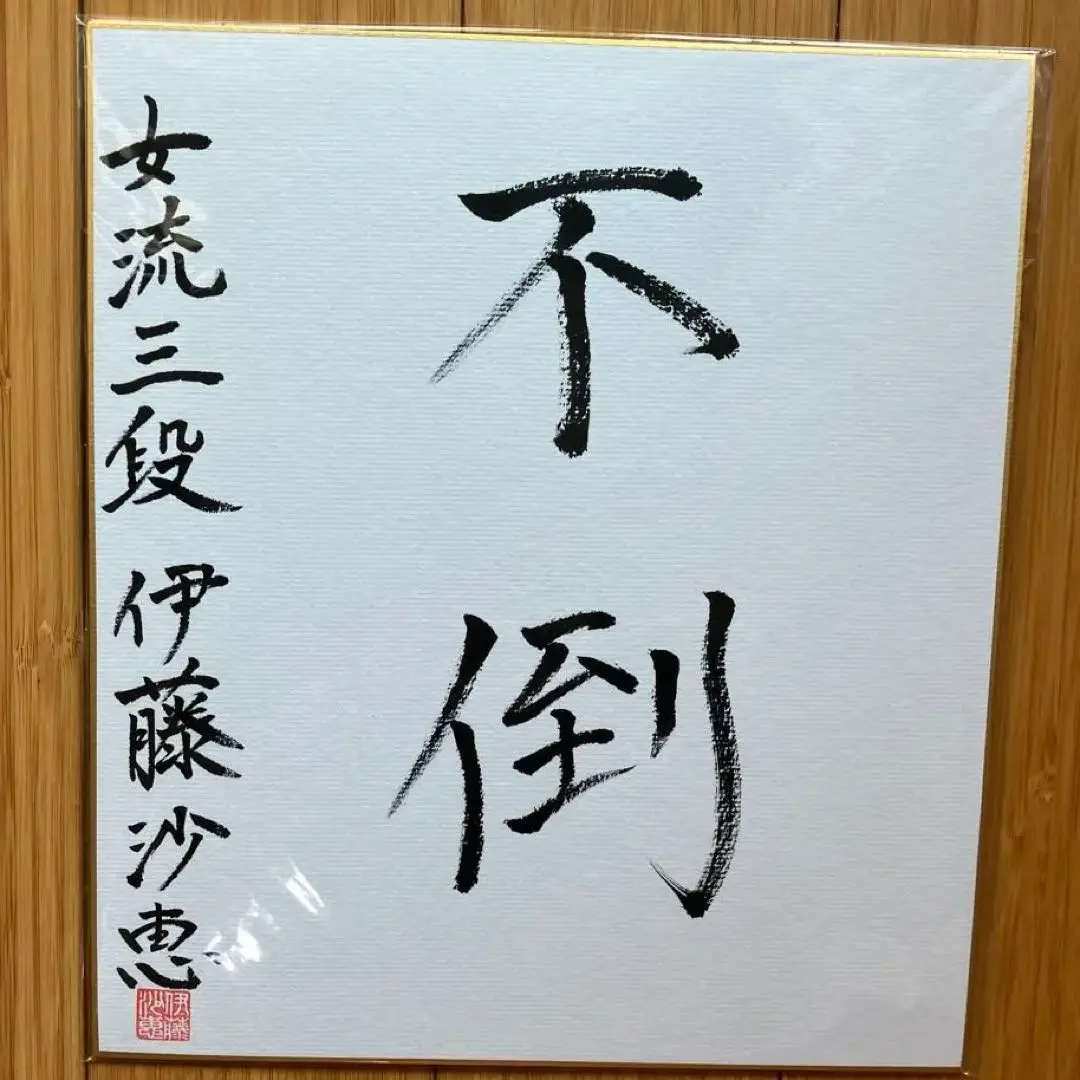 不倒
女流三段 伊藤沙恵
伊藤
沙恵